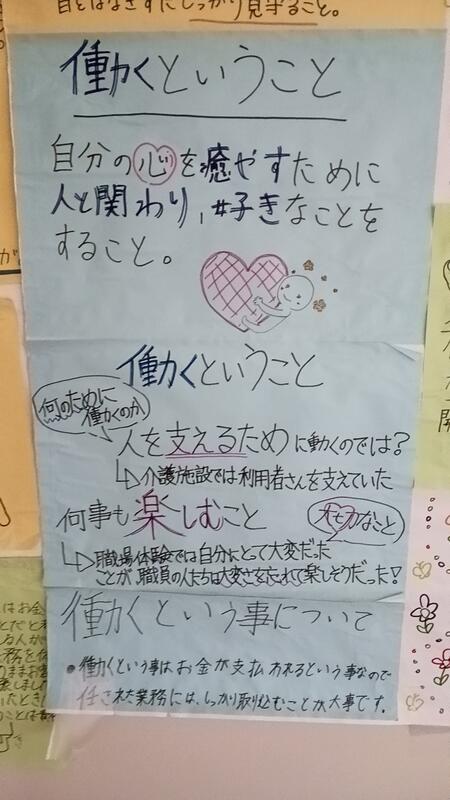 目とはなさずにしっかり見守ること。
働くということ
自分の心を癒やすために
人と関わり,好きなことを
すること。
働くということ
何のために
働くのか
人を支えるために働くのでは?
介護施設では利用者さんを支えていた
何事も楽しむこと
大切なこと
職場体験では自分にとって大変だった
ことが、職員の人たちは大変さを忘れて楽しそうだった!
働くという事について
●働くという事はお金が支払われるという事なので
任された業務には、しっかり取り込むことが大事です。